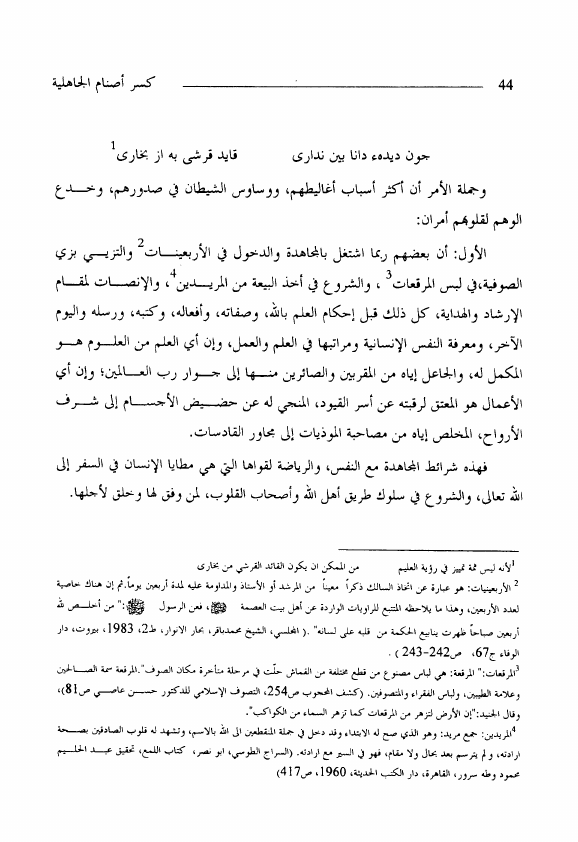 44 كسر أصنام الجاهلية
جون ديدهء دانا بين ندارى قايد قرشى به از بخارى1
وجملة الأمر أن أكثر أسباب أغاليطهم، ووساوس الشيطان في صدورهم، وخدع
الوهم لقلوبهم أمران:
الأول: أن بعضهم ربما اشتغل بالمجاهدة والدخول في الأربعينات2 والتزيي بزي
الصوفية،في لبس المرقعات3 ، والشروع في أخذ البيعة من المريدين4، والإنصات لمقام
الإرشاد والهداية، كل ذلك قبل إحكام العلم بالله، وصفاته، وأفعاله، وكتبه، ورسله واليوم
الآخر، ومعرفة النفس الإنسانية ومراتبها في العلم والعمل، وإن أي العلم من العلوم هو
المكمل له، والجاعل إياه من المقربين والصائرين منها إلى جوار رب العالمين؛ وإن أي
الأعمال هو المعتق لرقبته عن أسر القيود، المنجي له عن حضيض الأجسام إلى شرف
الأرواح، المخلص إياه من مصاحبة الموذيات إلى مجاور القادسات.
فهذه شرائط المجاهدة مع النفس، والرياضة لقواها التي هي مطايا الإنسان في السفر إلى
الله تعالى، والشروع في سلوك طريق أهل الله وأصحاب القلوب، لمن وفق لها وخلق لأجلها.
1لأنه ليس ثمة تمييز في رؤية العليم من الممكن ان يكون القائد القرشي من بخارى
2 الأربعينيات: هو عبارة عن اتخاذ السالك ذكراً معيناً من المرشد أو الأستاذ والمداومة عليه لمدة أربعين يوماً.ثم إن هناك خاصية
لعدد الأربعين، وهذا ما يلاحظه المتتبع للراويات الواردة عن أهل بيت العصمة ، فعن الرسول ﷺ:" من أخلص لله
أربعين صباحاً ظهرت ينابيع الحكمة من قلبه على لسانه" .( المجلسي، الشيخ محمدباقر، بحار الانوار، ط2، 1983، بيروت، دار
الوفاء ج67، ص242-243 ) .
3المرقعات:" المرقعة: هي لباس مصنوع من قطع مختلفة من القماش حلّت في مرحلة متأخرة مكان الصوف".المرقعة سمة الصالحين
وعلامة الطيبين، ولباس الفقراء والمتصوفين. (كشف المحجوب ص254، التصوف الإسلامي للدكتور حسن عاصي ص81)،
وقال الجنيد:"إن الأرض لتزهر من المرقعات كما تزهر السماء من الكواكب".
4المريدين: جمع مريد: وهو الذي صح له الابتداء وقد دخل في جملة المنقطعين الى الله بالاسم، وتشهد له قلوب الصادقين بصحة
ارادته، و لم يترسم بعد بحال ولا مقام، فهو في السير مع ارادته. (السراج الطوسي، ابو نصر، كتاب اللمع، تحقيق عبد الحليم
محمود وطه سرور، القاهرة، دار الكتب الحديثة، 1960، ص417)